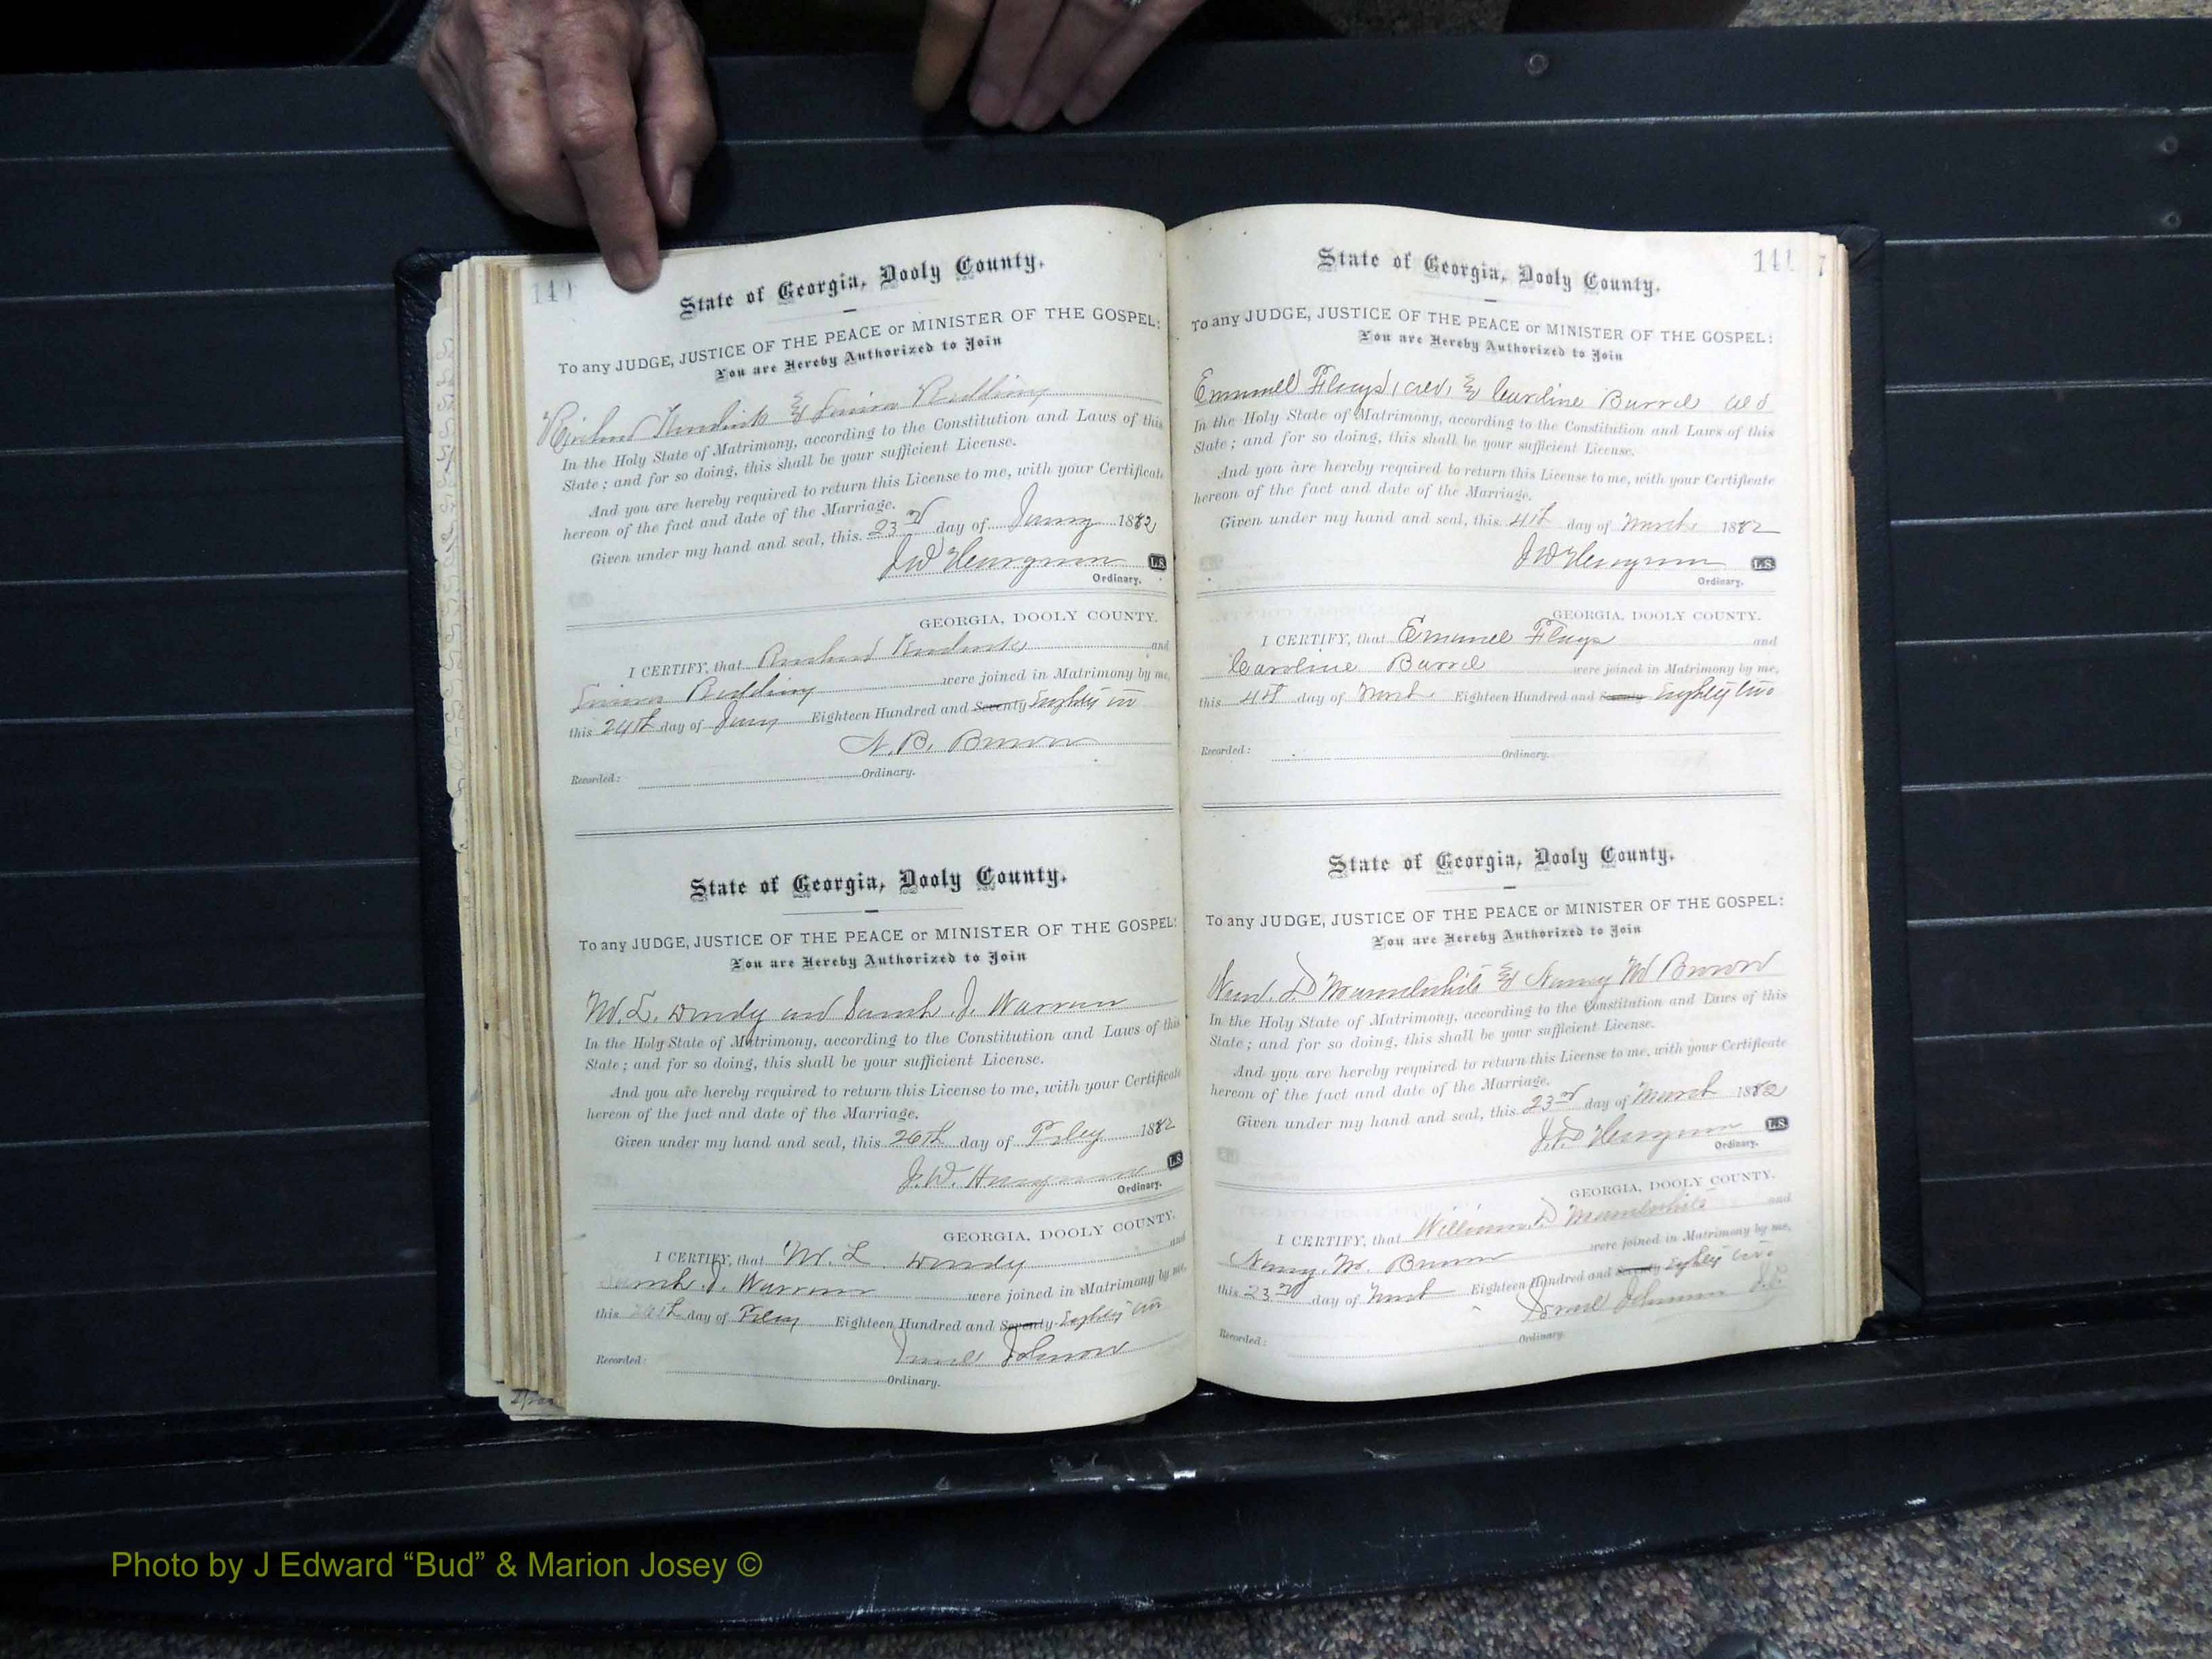 140
State of Georgia, Dooly County.
To any JUDGE, JUSTICE OF THE PEACE or MINISTER OF THE GOSPEL:
You are Hereby Authorized to Join
& Redding
In the Holy State of Matrimony, according to the Constitution and Laws of this
State; and for so doing, this shall be your sufficient License.
And you are hereby required to return this License to me, with your Certificate
hereon of the fact and date of the Marriage.
Given under my hand and seal, this 23rd day of 1882
L.S.
Ordinary.
GEORGIA, DOOLY COUNTY.
I CERTIFY, that and
Redding were joined in Matrimony by me,
this 24th day of Eighteen Hundred and Seventy Eighty two
N. B. Brown
Recorded: Ordinary.
State of Georgia, Dooly County.
To any JUDGE, JUSTICE OF THE PEACE or MINISTER OF THE GOSPEL:
You are Hereby Authorized to Join
and Sarah J. Warren
In the Holy State of Matrimony, according to the Constitution and Laws of this
State; and for so doing, this shall be your sufficient License.
And you are hereby required to return this License to me, with your Certificate
hereon of the fact and date of the Marriage.
Given under my hand and seal, this 26th day of 1882
J. W. L.S.
Ordinary.
GEORGIA, DOOLY COUNTY.
I CERTIFY, that and
J. Warren were joined in Matrimony by me,
this day of Eighteen Hundred and Seventy Eighty two
Johnson
Recorded: Ordinary.
141
State of Georgia, Dooly County.
To any JUDGE, JUSTICE OF THE PEACE or MINISTER OF THE GOSPEL:
You are Hereby Authorized to Join
& Caroline Burrel
In the Holy State of Matrimony, according to the Constitution and Laws of this
State; and for so doing, this shall be your sufficient License.
And you are hereby required to return this License to me, with your Certificate
hereon of the fact and date of the Marriage.
Given under my hand and seal, this 4th day of March 1882
L.S.
Ordinary.
GEORGIA, DOOLY COUNTY.
I CERTIFY, that Emanuel and
Caroline Burrel were joined in Matrimony by me,
this 4th day of March Eighteen Hundred and Seventy Eighty two
Recorded: Ordinary.
State of Georgia, Dooly County.
To any JUDGE, JUSTICE OF THE PEACE or MINISTER OF THE GOSPEL:
You are Hereby Authorized to Join
& Nancy M Brown
In the Holy State of Matrimony, according to the Constitution and Laws of this
State; and for so doing, this shall be your sufficient License.
And you are hereby required to return this License to me, with your Certificate
hereon of the fact and date of the Marriage.
Given under my hand and seal, this 23rd day of March 1882
L.S.
Ordinary.
GEORGIA, DOOLY COUNTY.
I CERTIFY, that William D and
Nancy M. Brown were joined in Matrimony by me,
this 23rd day of March Eighteen Hundred and Seventy Eighty two
Johnson
Recorded: Ordinary.
Photo by J Edward “Bud” & Marion Josey ©